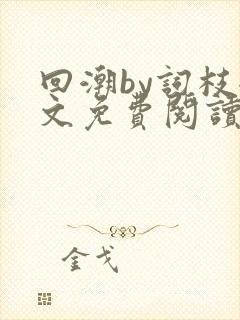 回潮by詞枝
文免費閱讀
金戈